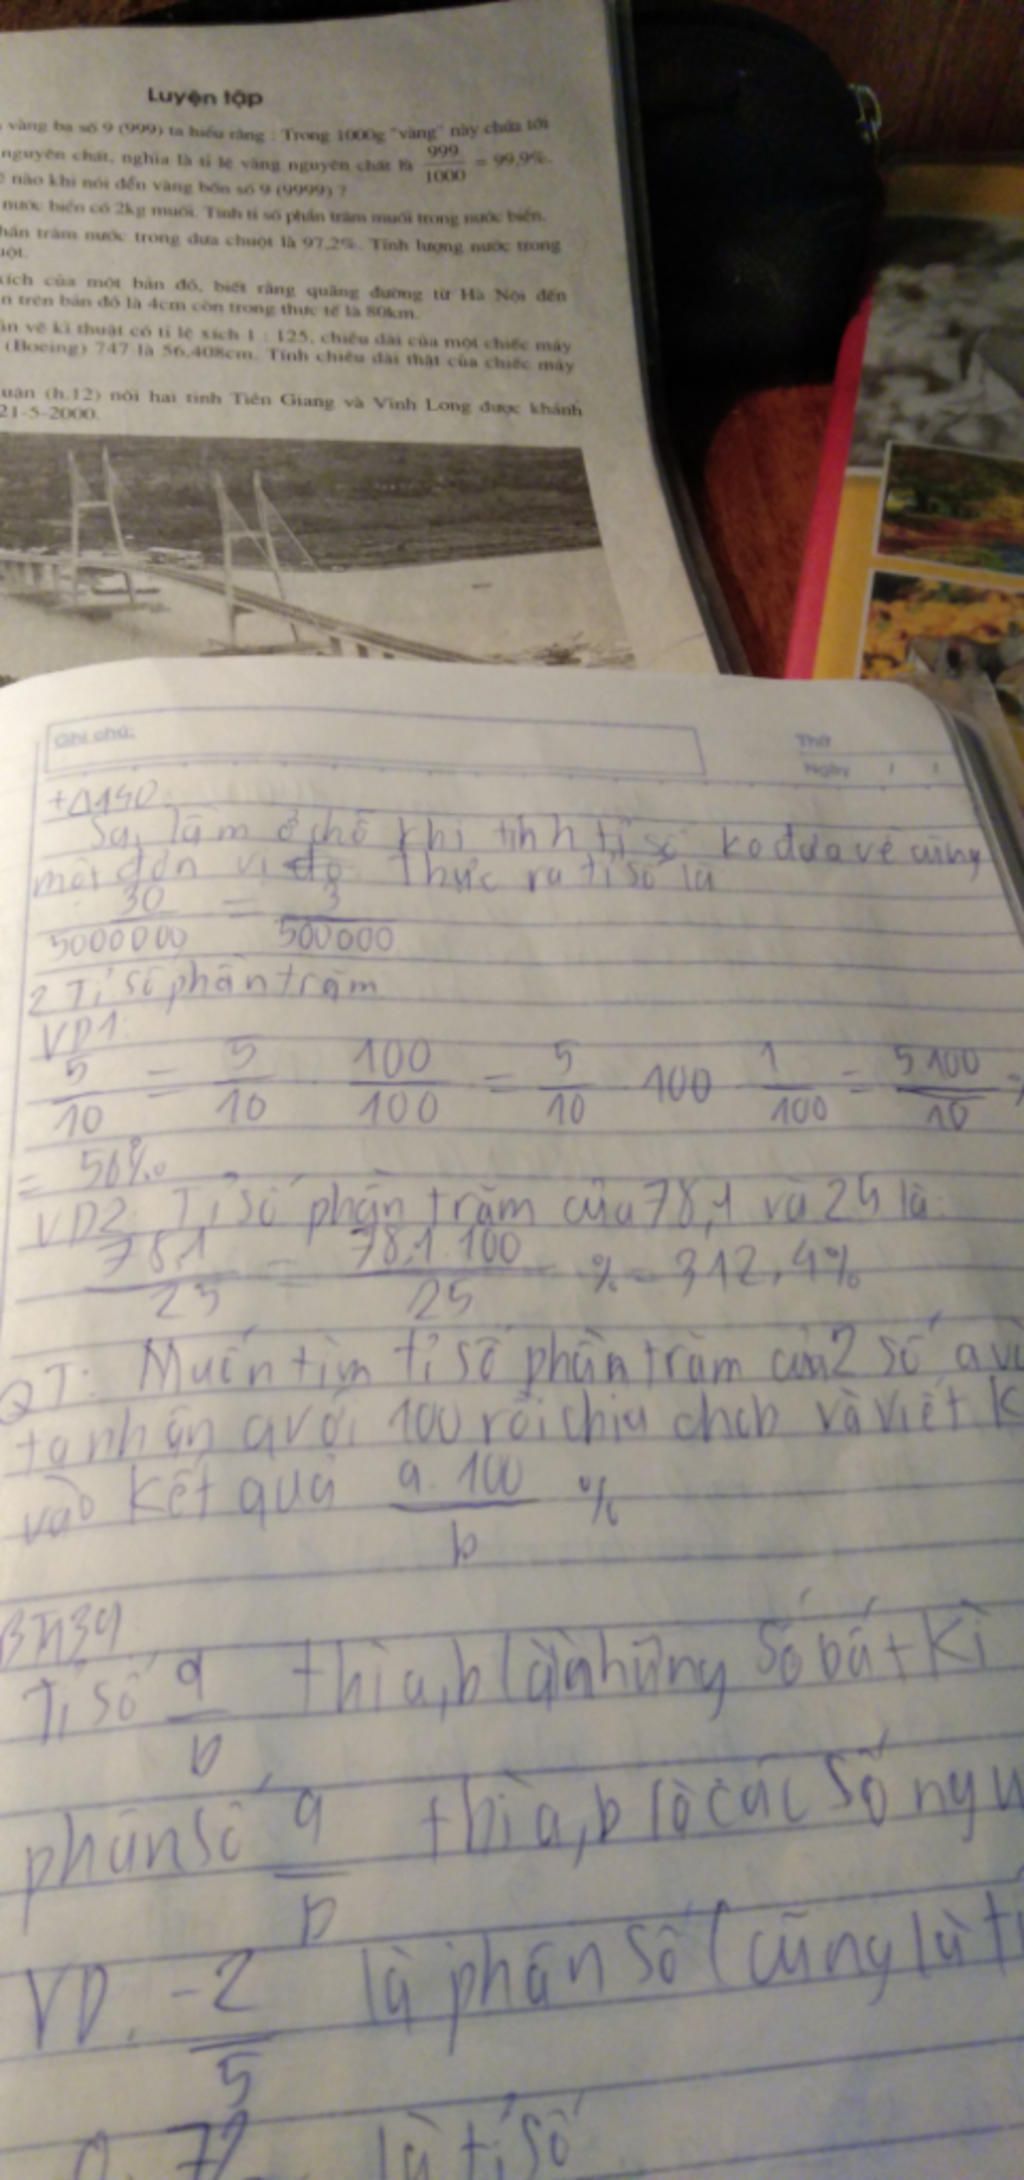 Luyện tập
vàng ba số 9 (999) ta hiểu rằng : Trong 1000g "vàng" này chứa tới
nguyên chất, nghĩa là tỉ lệ vàng nguyên chất là 999/1000 = 99,9%.
nào khi nói đến vàng bốn số 9 (9999) ?
nước biển có 2kg muối. Tính tỉ số phần trăm muối trong nước biển.
trăm nước trong dưa chuột là 97,2%. Tính lượng nước trong
của một bản đồ, biết rằng quãng đường từ Hà Nội đến
trên bản đồ là 4cm còn trong thực tế là 80km.
vẽ kĩ thuật có tỉ lệ xích 1 : 125, chiều dài của một chiếc máy
(Boeing) 747 là 56,408cm. Tính chiều dài thật của chiếc máy
(h.12) nối hai tỉnh Tiền Giang và Vĩnh Long được khánh
21-5-2000.
Ghi chú:
Thứ
Ngày / /
Sai lầm ở chỗ khi tính tỉ số ko đưa về cùng
một đơn vị đo Thực ra tỉ số là
30/5000000 = 3/500000
2 Tỉ số phần trăm
VD1:
5/10 = 5/10 . 100/100 = 5/10 100 1/100 = 5 100/10
= 50%
VD2: Tỉ số phần trăm của 78,1 và 25 là:
78,1/25 = 78,1.100/25 % = 312,4%
QT: Muốn tìm tỉ số phần trăm của 2 số a
ta nhân a với 100 rồi chia cho b và viết
vào kết quả a.100/b %
Tỉ số a/b thì a,b là những số bất kì
phân số a/b thì a,b là các số
VD: -2/5 là phân số (cũng là
là tỉ số